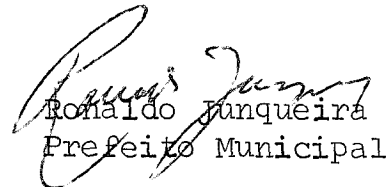 Ronaldo Junqueira
Prefeito Municipal